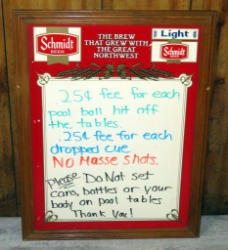 Schmidt
BEER
THE BREW
THAT GREW WITH
THE GREAT
NORTHWEST
Light
Schmidt
25¢ fee for each
pool ball hit off
the tables.
.25¢ fee for each
dropped cue
NO Masse shots.
Please Do Not set
cans, bottles or your
body on pool tables
Thank You!